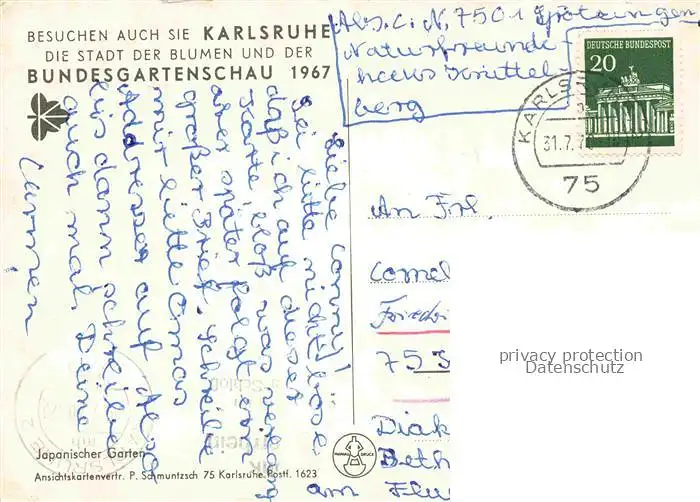 BESUCHEN AUCH SIE KARLSRUHE
DIE STADT DER BLUMEN UND DER
BUNDESGARTENSCHAU 1967
Abs. C. N. 7501
Naturfreunde
haus Knittel
berg
DEUTSCHE BUNDESPOST
20
KARLS
31.7.7
75
Liebe Conny!
Sei bitte nicht böse
daß ich auf dieser
Karte bloß was
aber später folgt ein
großer Brief. Schreibe
mir bitte Omas
Addresse auf
Bis dann schreibe
auch mal. Deine
Carmen
An Frl.
Cornel
Friedri
75
Diak
Beth
am
privacy protection
Datenschutz
Japanischer Garten
Ansichtskartenvertr. P. Schmuntzsch 75 Karlsruhe Postf. 1623